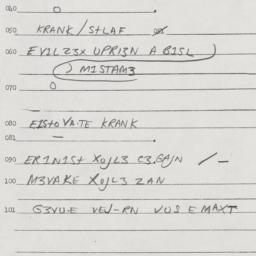 040 O
050 KRANK/StLAF
060 EVIL23X UPRI3N A BISL
MISTAM3
070 O
080 EIStOVATE KRANK
081 —
090 ER1N1St XOJL3 C3.GAJN /—
100 M3VAKE XOJL3 ZAN
101 G3VU.E VEJ-RN VUS E MAXT